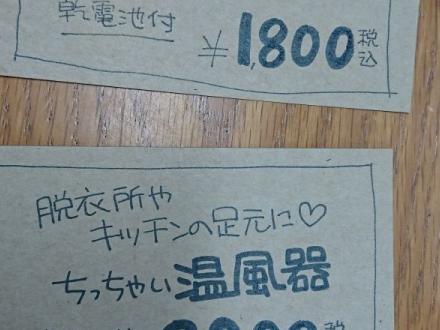 乾電池付
¥1,800税込
脱衣所や
キッチンの足元に♡
ちっちゃい温風器
税